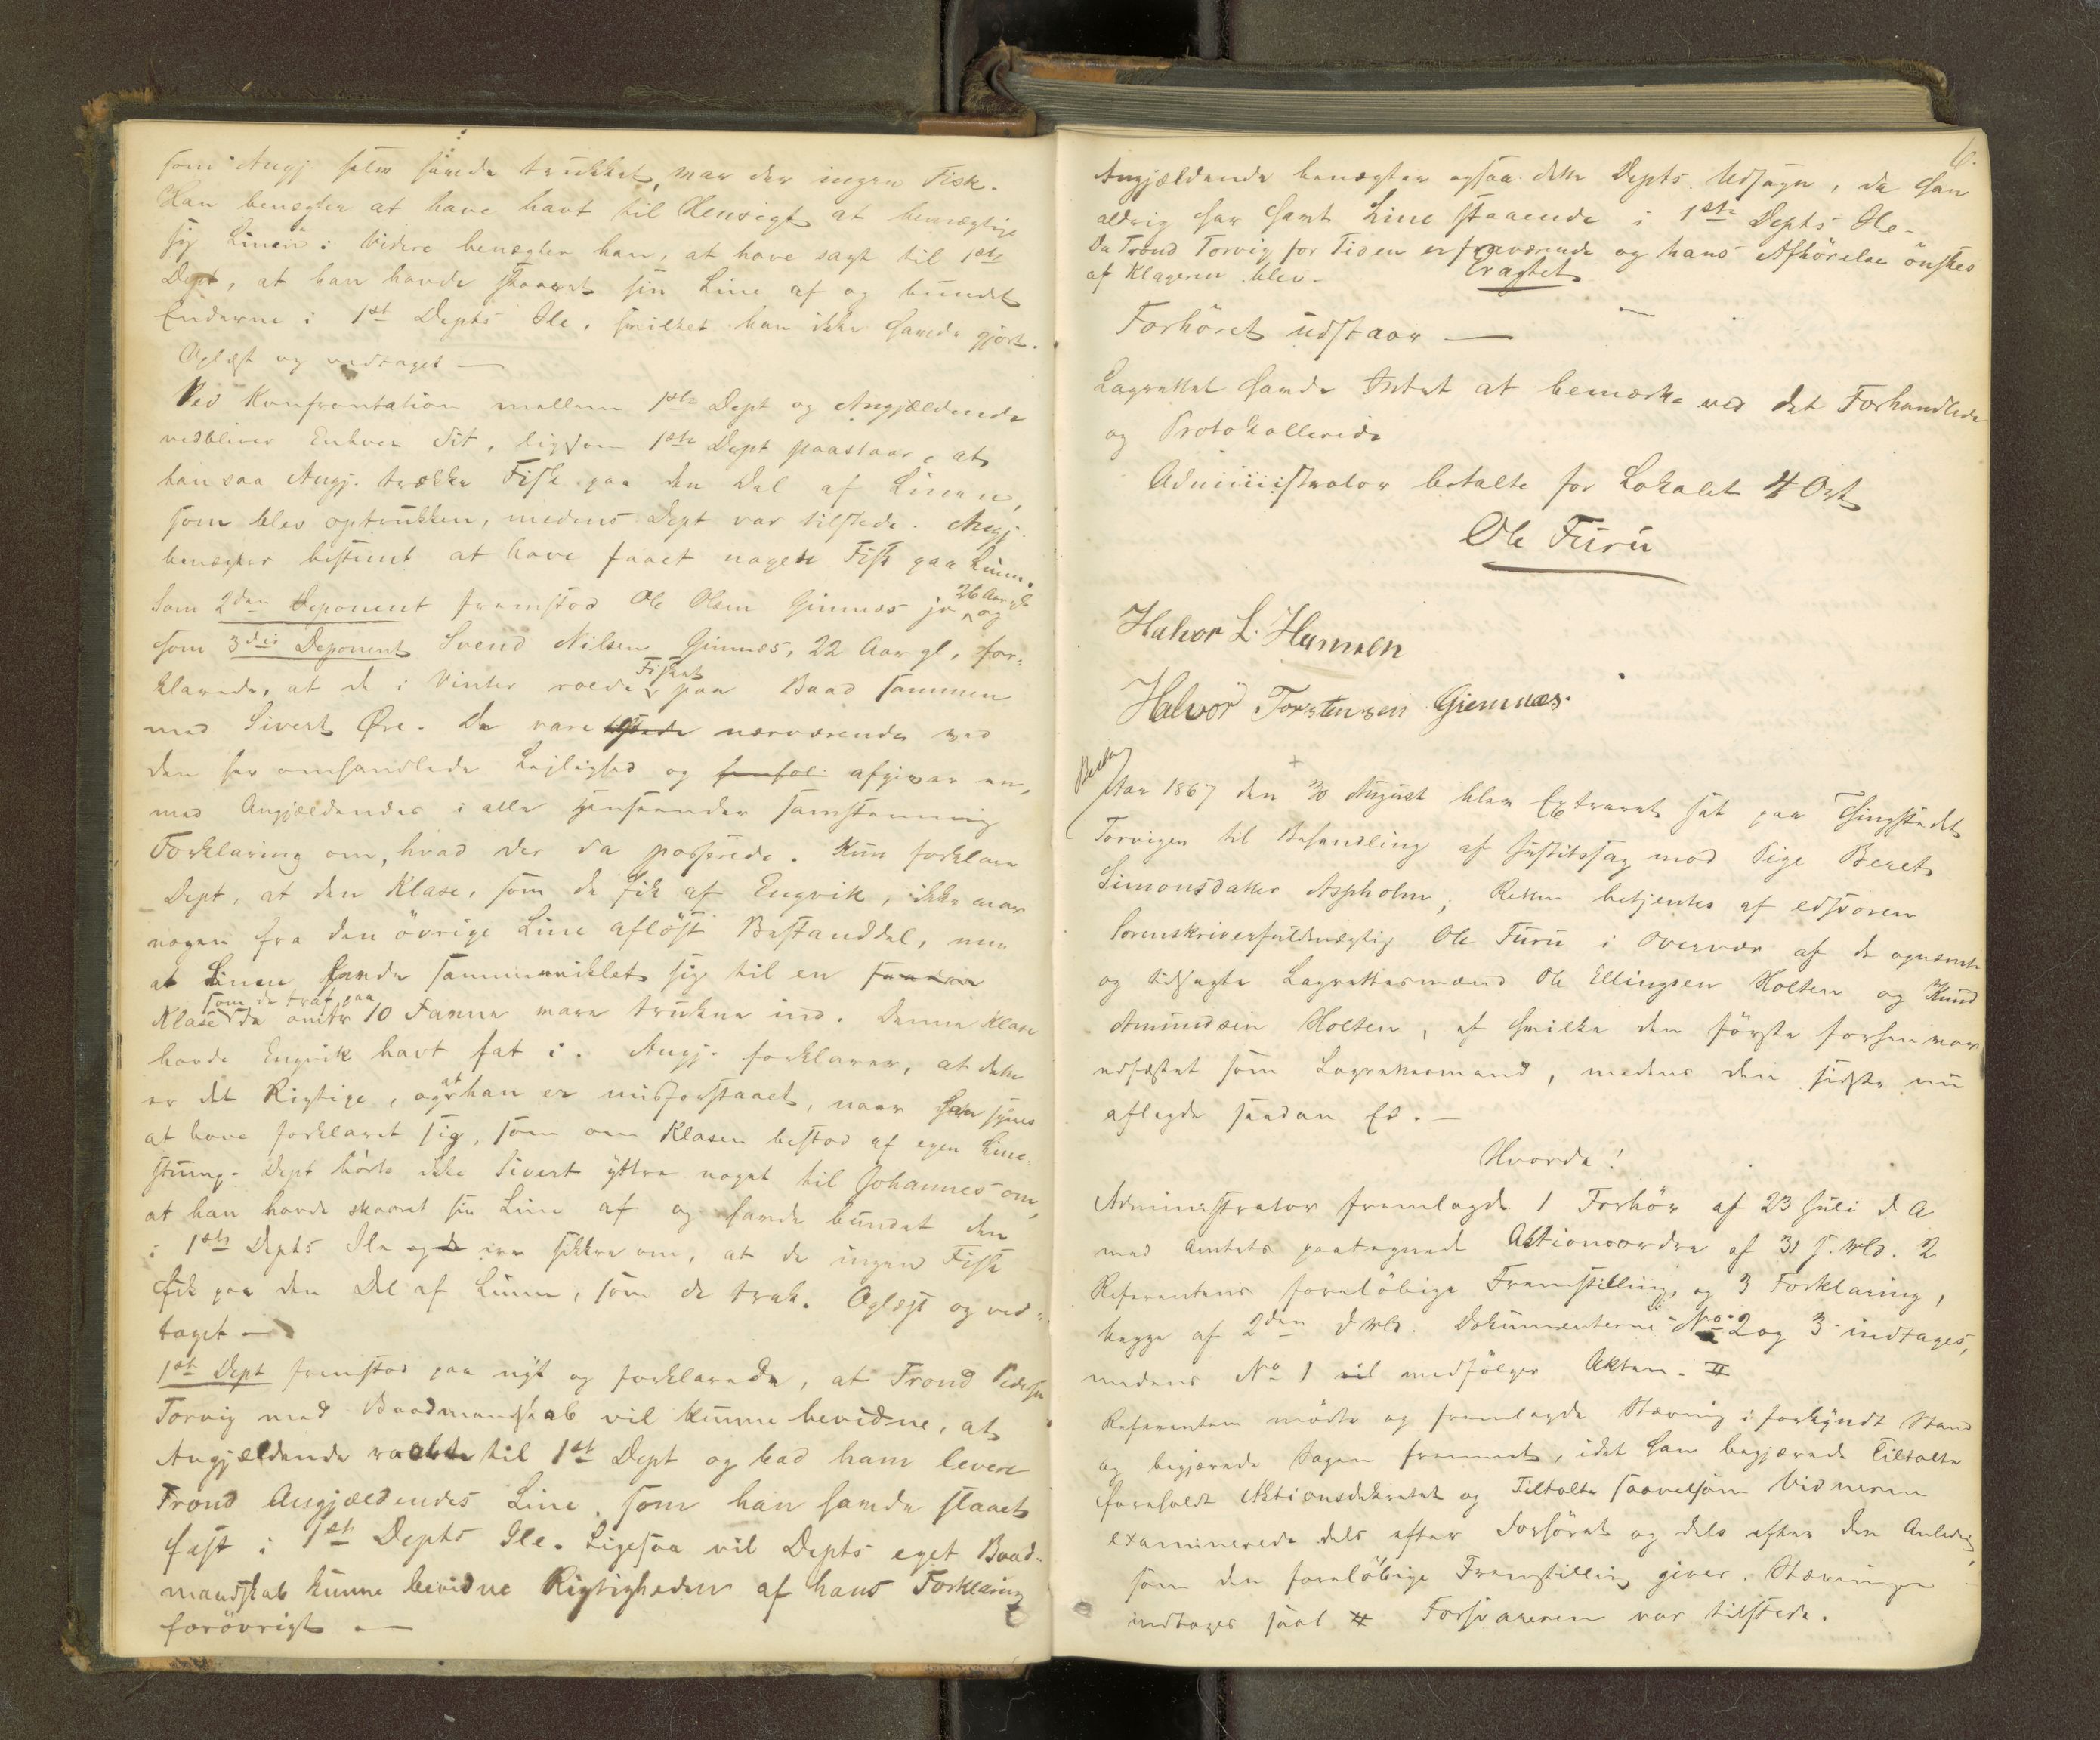 som Angj. selv havde trukket, var der ingen Fisk.
Han benegter at have havt til Hensigt at bemægtige
sig Linen: Videre benegter han, at have sagt til 1ste
Dept, at han havde skaaret sin Line af og bundet
Enderne i 1ste Depts Ile, hvilket han ikke havde gjort.
Oplæst og vedtaget —
Ved Konfrontation mellem 1ste Dept og Angjældende
vedbliver Enhver Sit, ligesom 1ste Dept paastaar, at
han saa Angj. trække Fisk paa den Del af Linen,
som blev optrukken, medens Dept var tilstede. Angj.
benegter bestemt at have faaet nogen Fisk paa Linen.
Som 2den Deponent fremstod Ole Olsen Gimnæs jr 26 Aar gl og
som 3die Deponent Svend Nilsen Gimnæs, 22 Aar gl, for=
klarede, at de i Vinter roede Fisket paa Baad sammen
med Sivert Øre. De vare nærværende ved
den her omhandlede Leilighed og afgiver en,
med Angjældendes i alle Henseender samstemmig
Forklaring om, hvad der da passerede. Kun forklare
Dept, at den Klase, som de fik af Engvik, ikke var
nogen fra den øvrige Line afløst Bestanddel, men
at Linen havde sammenviklet sig til en saadan
Klase som de traf paa da omtr 10 Favne vare trukne ind. Denne Klase
havde Engvik havt fat i. Angj. forklarer, at dette
er det Rigtige, og at han er misforstaaet, naar han synes
at have forklaret sig, som om Klasen bestod af egen Line=
stump. Dept hørte ikke Sivert yttre noget til Johannes om,
at han havde skaaret sin Line af og havde bundet den
i 1ste Depts Ile og de ere sikkre om, at de ingen Fisk
fik paa den Del af Linen, som de trak. Oplæst og ved=
taget —
1ste Dept fremstod paa nyt og forklarede, at Trond Pedersen
Torvig med Baadmandskab vil kunne bevidne, at
Angjældende raabte til 1ste Dept og bad ham levere
Trond Angjældendes Line, som han havde staaet
fast i 1ste Depts Ile. Ligesaa vil Depts eget Baad=
mandskab kunne bevidne Rigtigheden af hans Forklaring
forøvrigt. —
6.
Angjældende benegter ogsaa dette Depts Udsagn, da han
aldrig har havt Line staaende i 1ste Depts Ile —
Da Trond Torvig for Tiden er fraværende og hans Afhörelse önskes
af Klageren blev — Eragtet
Forhöret udstaar —
Lagrettet havde Intet at bemærke ved det Forhandlede
og Protokollerede
Administrator betalte for Lokalet 4 Ort
Ole Furu
Halvor L. Hammen
Halvor Torstensen Giemnæs.
Aar 1867 den 20 August blev Extraret sat paa Thingstedet
Torvigen til Behandling af Justitssag mod Pige Beret
Simonsdatter Aspholm; Retten betjentes af edsvoren
Sorenskriverfuldmægtig Ole Furu i Overvær af de opnævnte
og tilsagte Lagrettesmænd Ole Ellingsen Holten og Knud
Amundsen Holten, af hvilke den første forhen var
edfæstet som Lagrettesmand, medens den sidste nu
aflagde saadan Ed. —
Hvorda!
Administrator fremlagde 1 Forhör af 23 Juli d A
med Amtets paategnede Aktionsordre af 31 s. Md. 2
Referentens foreløbige Fremstilling, og 3 Forklaring,
begge af 2den d Md. Dokumenterne No 2 og 3 indtages,
medens No 1 medfölger Akten.
Referenten mödte og fremlagde Stævning i forkyndt Stand
og begjærede Sagen fremmet, idet han begjærede Tiltalte
foreholdt Aktionsdekretet og Tiltalte saavelsom Vidnerne
examinerede dels efter Forhöret og dels efter den Anledning,
som den foreløbige Fremstilling giver. Stævningen
indtages saal. Forsvareren var tilstede.